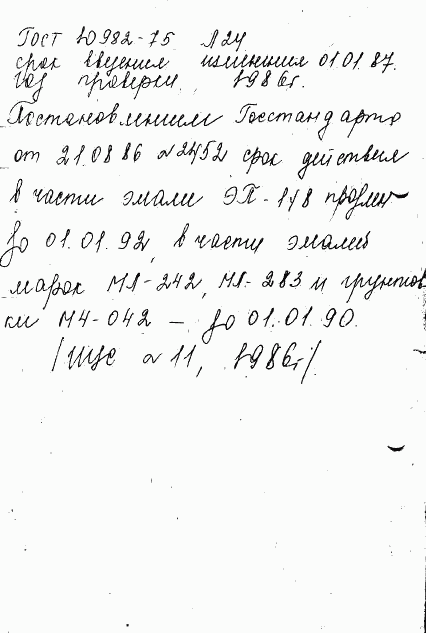 ГОСТ 10982-75 Л24
срок введения изменения 01.01.87.
год проверки 1986г.
Постановлением Госстандарта
от 21.08.86 № 2452 срок действия
в части эмали ЭП-148 продлен
до 01.01.92, в части эмалей
марок МЛ-242, МЛ-283 и грунтов
ки МЧ-042 – до 01.01.90.
/ИУС № 11, 1986г/